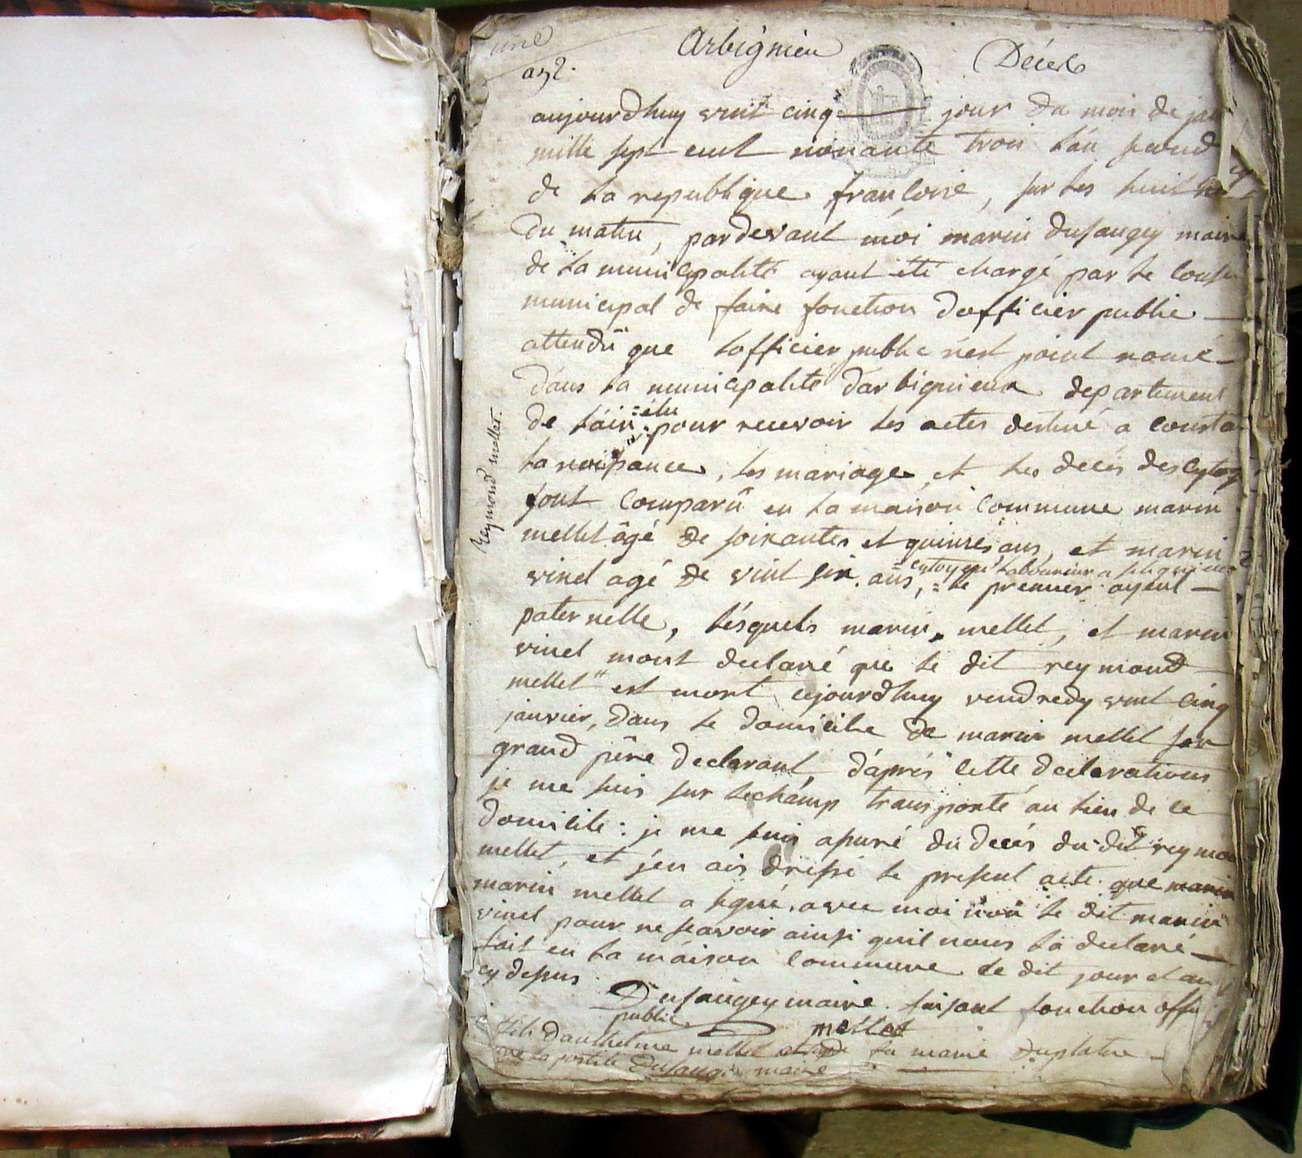 Arbignieu Décès
an 2.
aujourdhuy vint cinq jour du mois de jan
mille sept cent nonante trois L'an second
de La republique francoise, sur Les huit he
du matin, pardevant môi marin Dusaugey maire
de La municipalité ayant été chargé par Le Conseil
municipal de faire fonction dofficier public
attendû que Lofficier public nést point nomé
dans La municipalité darbignieux departement
de L'ain :élu: pour recevoir Les actes destiné a consta
La naissance, Les mariage, et Les decés des cytoy
sont Comparû en La maison Commune marin
mellet âgé de soixantes et quinzes ans, et marin
vinet agé de vint six ans, = cytoyens Laboureur a =
Le premier ayeul
paternelle, Lésquels marin mellet, et marin
vinet mont declaré que Le dit reymond
mellet est mort cejourdhuy vendredy vint cinq
janvier, dans Le domicile de marin mellet son
grand pére declarant, d'aprés Cette déclarations
je me suis sur Lechámp transporté au Lieu de ce
domicile: je me suis assuré du decés du dit reymon
mellet, et jén ais dréssé Le present acte que marin
marin mellet a signé, avec moi non Le dit marin
vinet pour ne scavoir ainsi quil nous La declaré
fait en La máison Commune Le dit jour et an
cy dessus
Dusaugey maire faisant fonction offi
public mellet
fils d'anthelme mellet et de La marie Duplatre
Dusaugey maire
Reymond mellet.